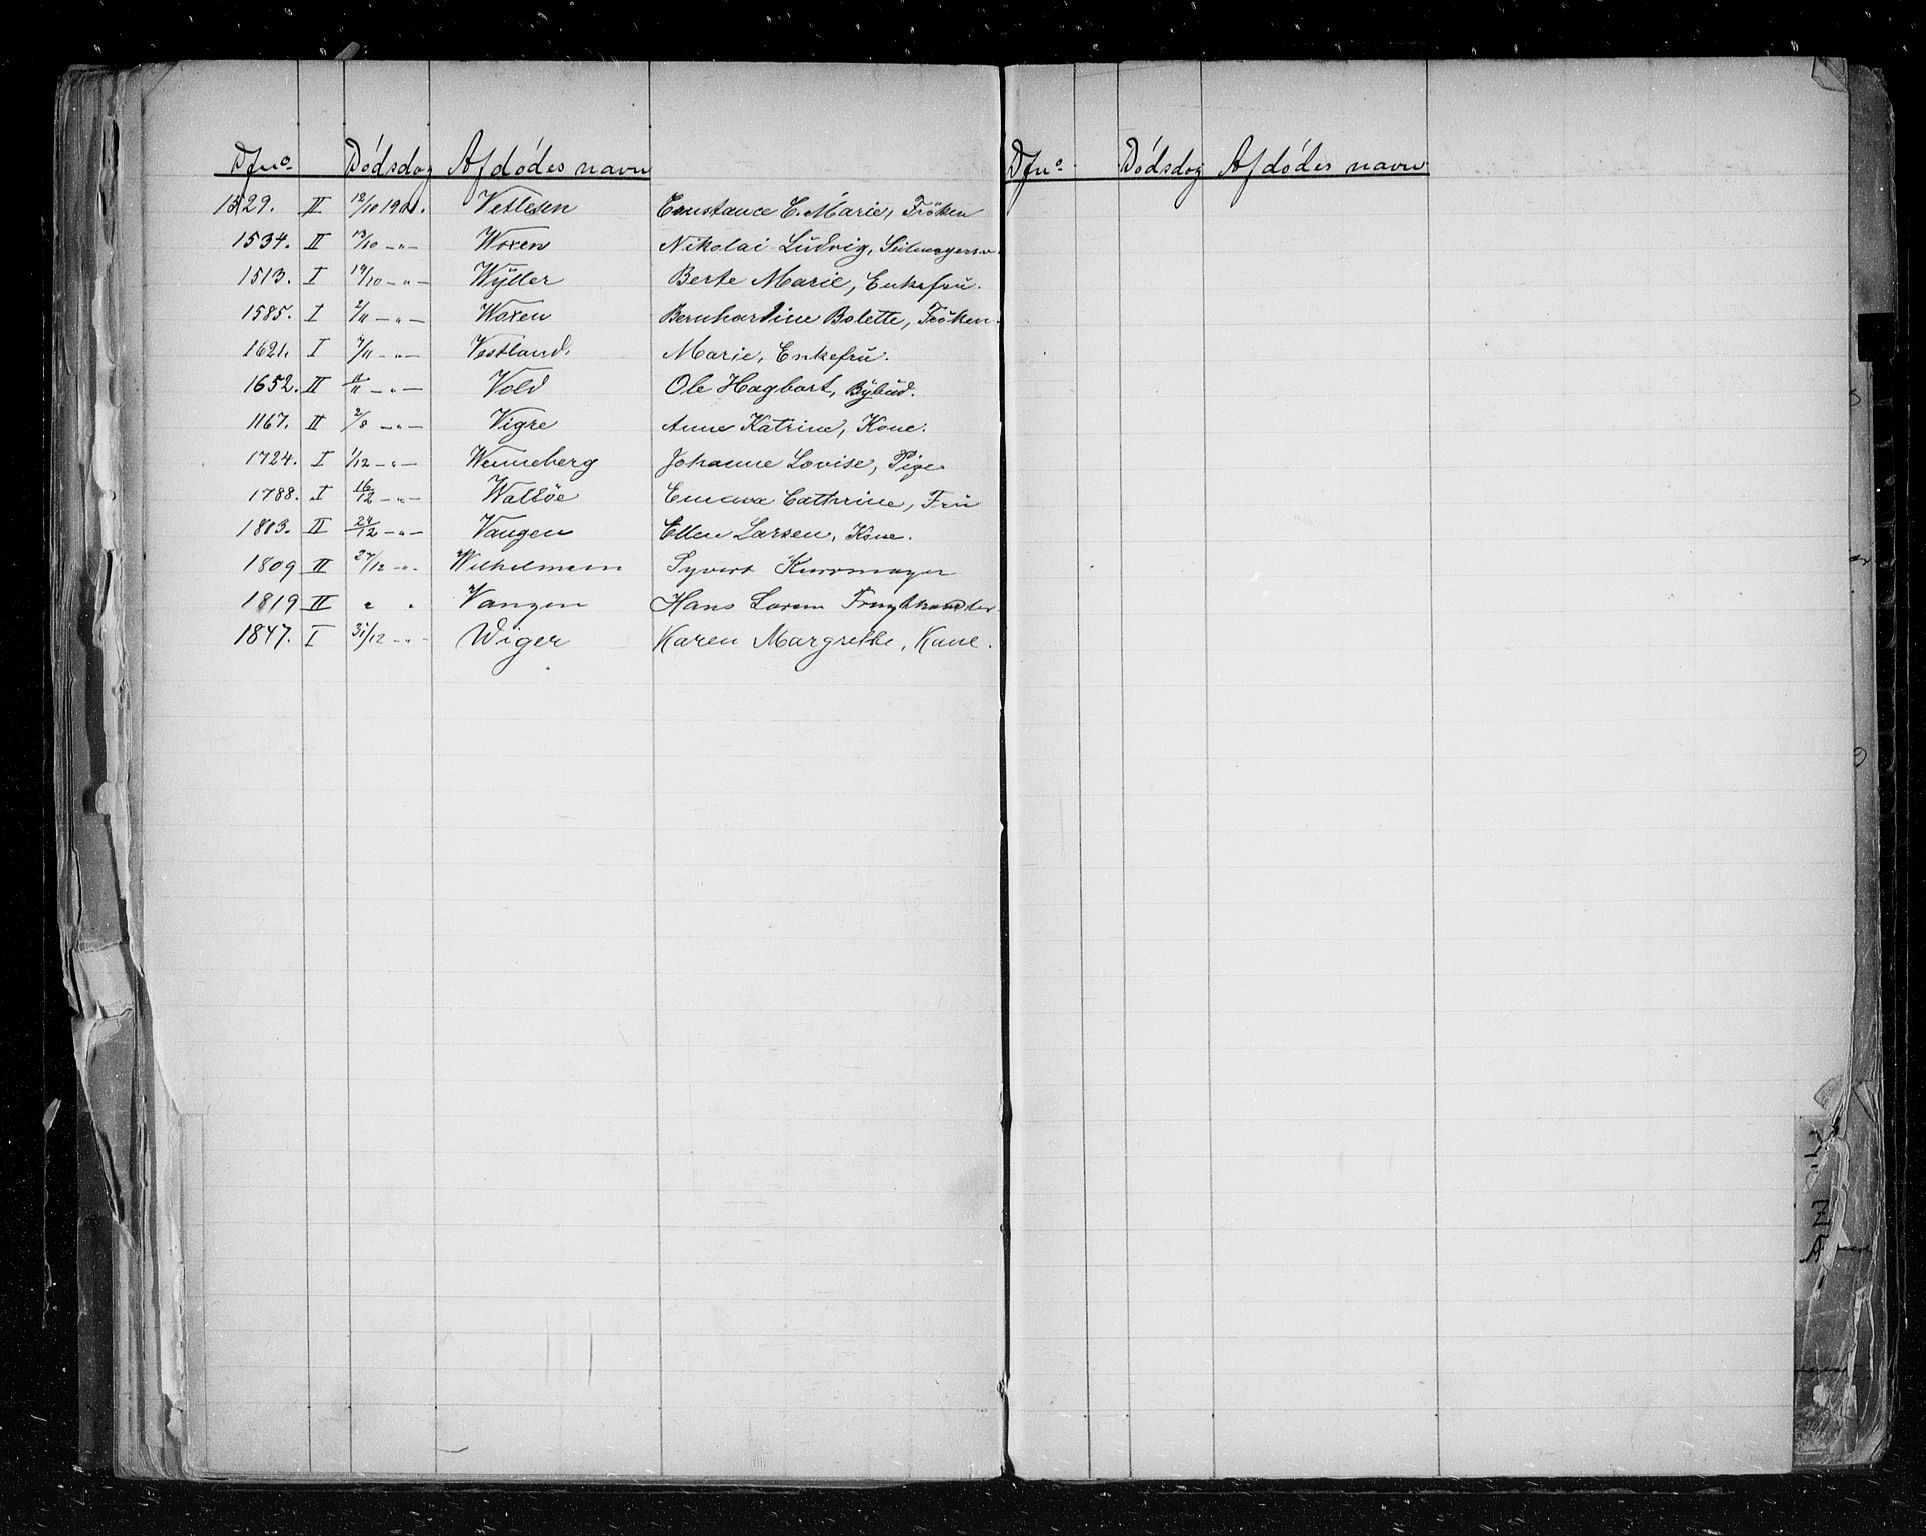 Dfnº Dödsdag Afdödes navn
1529. II 12/10 1901. Vetlesen Constance E. Marie, Fröken
1534. II 13/10 -"- Woxen Nikolai Ludvig,
1513. I 19/10 -"- Wyller Berte Marie, Enkefru.
1585. I 2/11 -"- Woxen Bernhardine Bolette, Fröken.
1621. I 7/11 -"- Vestland. Marie, Enkefru.
1652. II 11/11 -"- Vold Ole Hagbart, Bybud.
1167. II 2/8 -"- Vigre Anne Katrine, Kone.
1724. I 1/12 -"- Wenneberg Johanne Lovise, Pige
1788. I 16/12 -"- Walböe Emma Cathrine, Fru
1803. II 24/12 -"- Vangen Ellen Larsen, Kone.
1809 II 27/12 -"- Wilhelmsen Syvert Kurvmager
1819 II " " Vangen Hans Larsen Frugthandler
1847. I 31/12 -"- Wiger Karen Margrethe, Kone.
Dfnº Dödsdag Afdödes navn